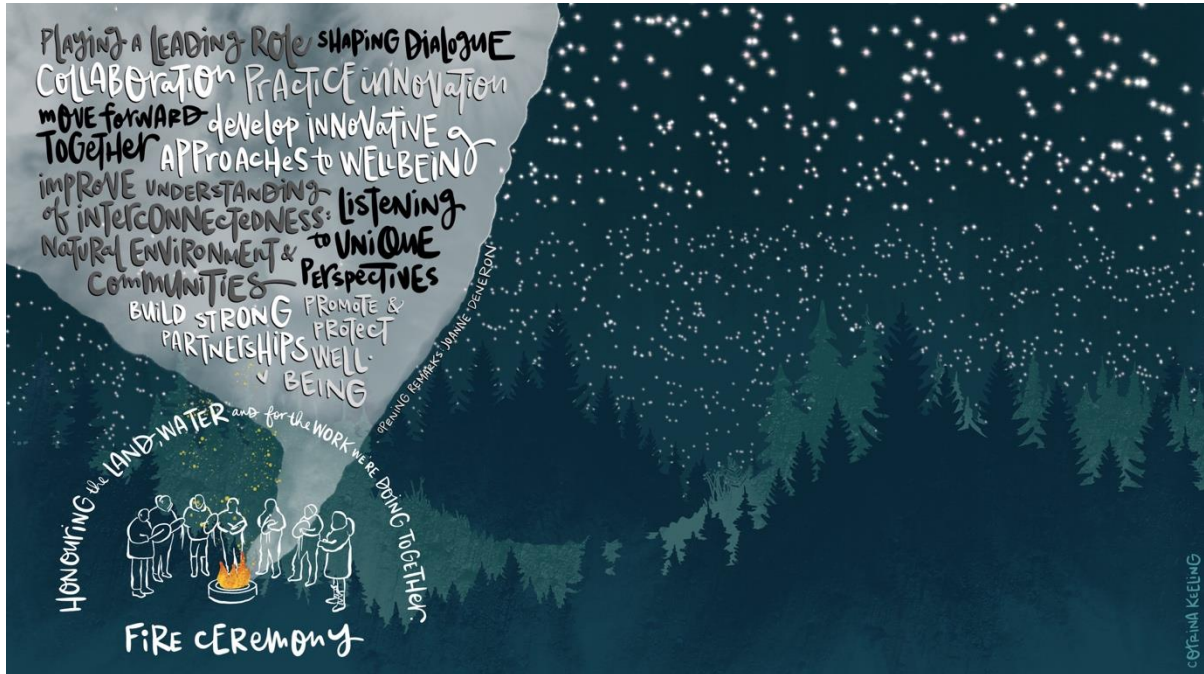 PLAYING A LEADING ROLE SHAPING DIALOGUE
COLLABORATION PRACTICE INNOVATION
MOVE FORWARD TOGETHER
DEVELOP INNOVATIVE APPROACHES to WELLBEING
IMPROVE UNDERSTANDING
of INTERCONNECTEDNESS:
NATURAL ENVIRONMENT &
COMMUNITIES
LISTENING
to UNIQUE
PERSPECTIVES
BUILD STRONG
PARTNERSHIPS
PROMOTE &
PROTECT
WELL-
BEING
OPENING REMARKS: JOANNE DENERON
HONOURING the LAND, WATER and for the WORK WE'RE DOING TOGETHER.
FIRE CEREMONY
©TRINA KEELING